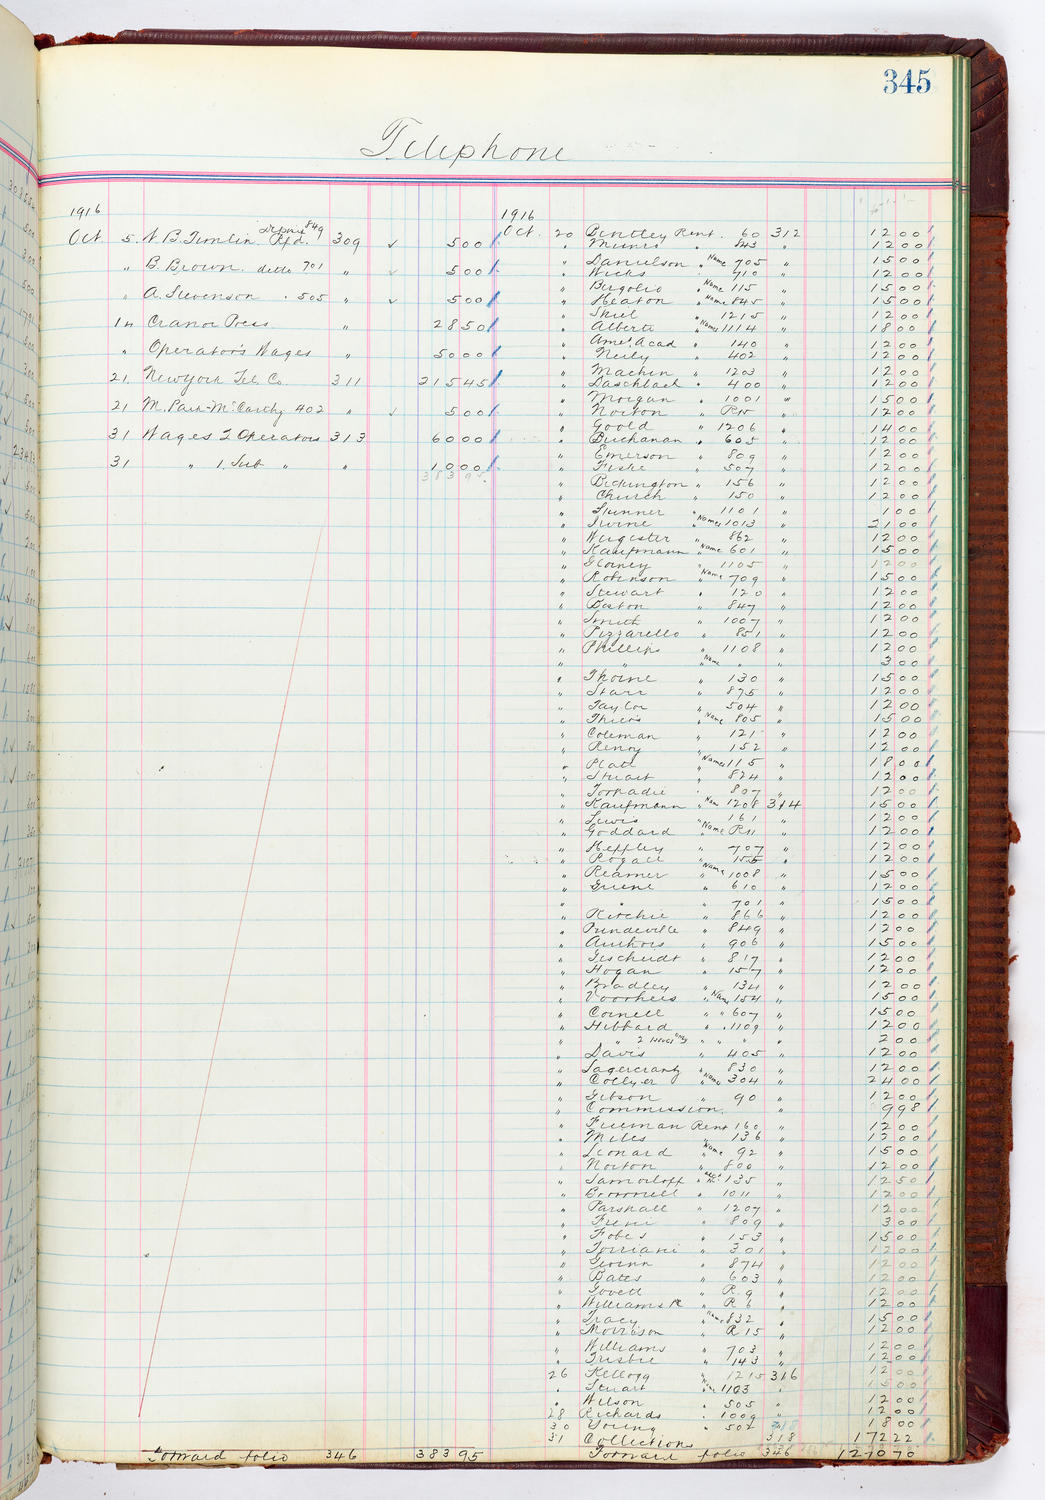 345
Telephone
1916
Oct. 5. N. B. Tomlin Rfd. 849 309 ✓ 5 00
" B. Brown. ditto 701 " ✓ 5 00
" A. Stevenson . 505 " ✓ 5 00
14 Cranor Press " 28 50
" Operator's Wages " 50 00
21. New York Tel. Co. 311 215 45
21 M. Park-McCarthy 402 " ✓ 5 00
31 Wages 2 Operators 313 60 00
31 " 1. Sub " " 10 00
383 95
Forward folio 346 383 95
1916
Oct. 20 Bentley Rent. 60 312 12 00
" Munro " 843 " 12 00
" Danielson " Name 705 " 15 00
" Hicks " 710 " 12 00
" Name 115 " 15 00
" Heaton " Name 845 " 15 00
" Skiel " 1215 " 12 00
" Alberti " Names 1114 " 18 00
" Amer. Acad " 140 " 12 00
" Neily " 402 " 12 00
" Machin " 1203 " 12 00
" Daschbach " 400 " 12 00
" Morgan " 1001 " 15 00
" Norton " 12 00
" Goold " 1206 " 14 00
" Buchanan " 605 " 12 00
" Emerson " 809 " 12 00
" Fiske " 507 " 12 00
" Bickington " 156 " 12 00
" Church " 150 " 12 00
" Skinner " 1101 " 1 00
" Irvine " Names 1013 " 21 00
" 862 " 12 00
" Kaufmann " Name 601 " 15 00
" 1105 " 12 00
" Robinson " Name 709 " 15 00
" Stewart " 120 " 12 00
" Baston " 847 " 12 00
" Smith " 1007 " 12 00
" Pizzarello " 851 " 12 00
" Phillips " 1108 " 12 00
" " " Name " " 3 00
" Thorne " 130 " 15 00
" Starr " 875 " 12 00
" Taylor " 504 " 12 00
" Name 805 " 15 00
" Coleman " 121 " 12 00
" 152 " 12 00
" Platt " Names 115 " 18 00
" Stuart " 824 " 12 00
" Torpadie " 807 " 12 00
" Kaufmann " Name 1208 314 15 00
" Lewis " 161 " 12 00
" Goddard " Name R11 " 12 00
" Heffley " 707 " 12 00
" Rogall " 155 " 12 00
" Reamer " Name 1008 " 15 00
" Greene " 610 " 12 00
" " " 701 " 15 00
" Ritchie " 866 " 12 00
" 849 " 12 00
" Authors " 906 " 15 00
" Gescheidt " 817 " 12 00
" Hogan " 157 " 12 00
" Bradley " 134 " 12 00
" Voorhees " Name 154 " 15 00
" Cornell " " 607 " 15 00
" Hibbard " 1109 " 12 00
" " 2 " " " 2 00
" Davis " 405 " 12 00
" Sagercrantz " 830 " 12 00
" Collyer " Names 304 " 24 00
" Gibson " 90 " 12 00
" Commission. " 9 98
" Freeman Rent 160 " 12 00
" Miles " 136 " 12 00
" Leonard " Name 92 " 15 00
" Norton " 800 " 12 00
" Samoiloff " 135 " 12 50
" Brownell " 1011 " 12 00
" Parshall " 1207 " 12 00
" 809 " 3 00
" Fobes " 153 " 15 00
" Torriani " 301 " 12 00
" Gwinn " 874 " 12 00
" Bates " 603 " 12 00
" Lovett " R.9 " 12 00
" Williams R " R 6 " 12 00
" Tracy " Name 832 " 15 00
" Morrison " R 15 " 12 00
" Williams " 703 " 12 00
" Frisbie " 143 " 12 00
26 Kellogg " 1215 316 12 00
" Stuart " Name 1103 " 15 00
" Wilson " 505 " 12 00
28 Richards " 1009 " 12 00
30 Young " 502 18 00
31 Collections 318 172 22
Forward folio 346 1270 70